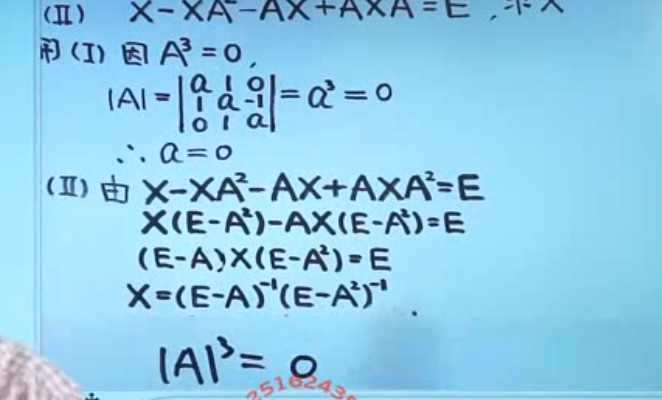 (II) X-XA²-AX+AXA²=E，求X
解(I) 因 A³=0，
|A|=|a 1 0|
|1 a -1|=a³=0
|0 1 a|
∴ a=0
(II) 由 X-XA²-AX+AXA²=E
X(E-A²)-AX(E-A²)=E
(E-A)X(E-A²)=E
X=(E-A)⁻¹(E-A²)⁻¹.
|A|³= 0